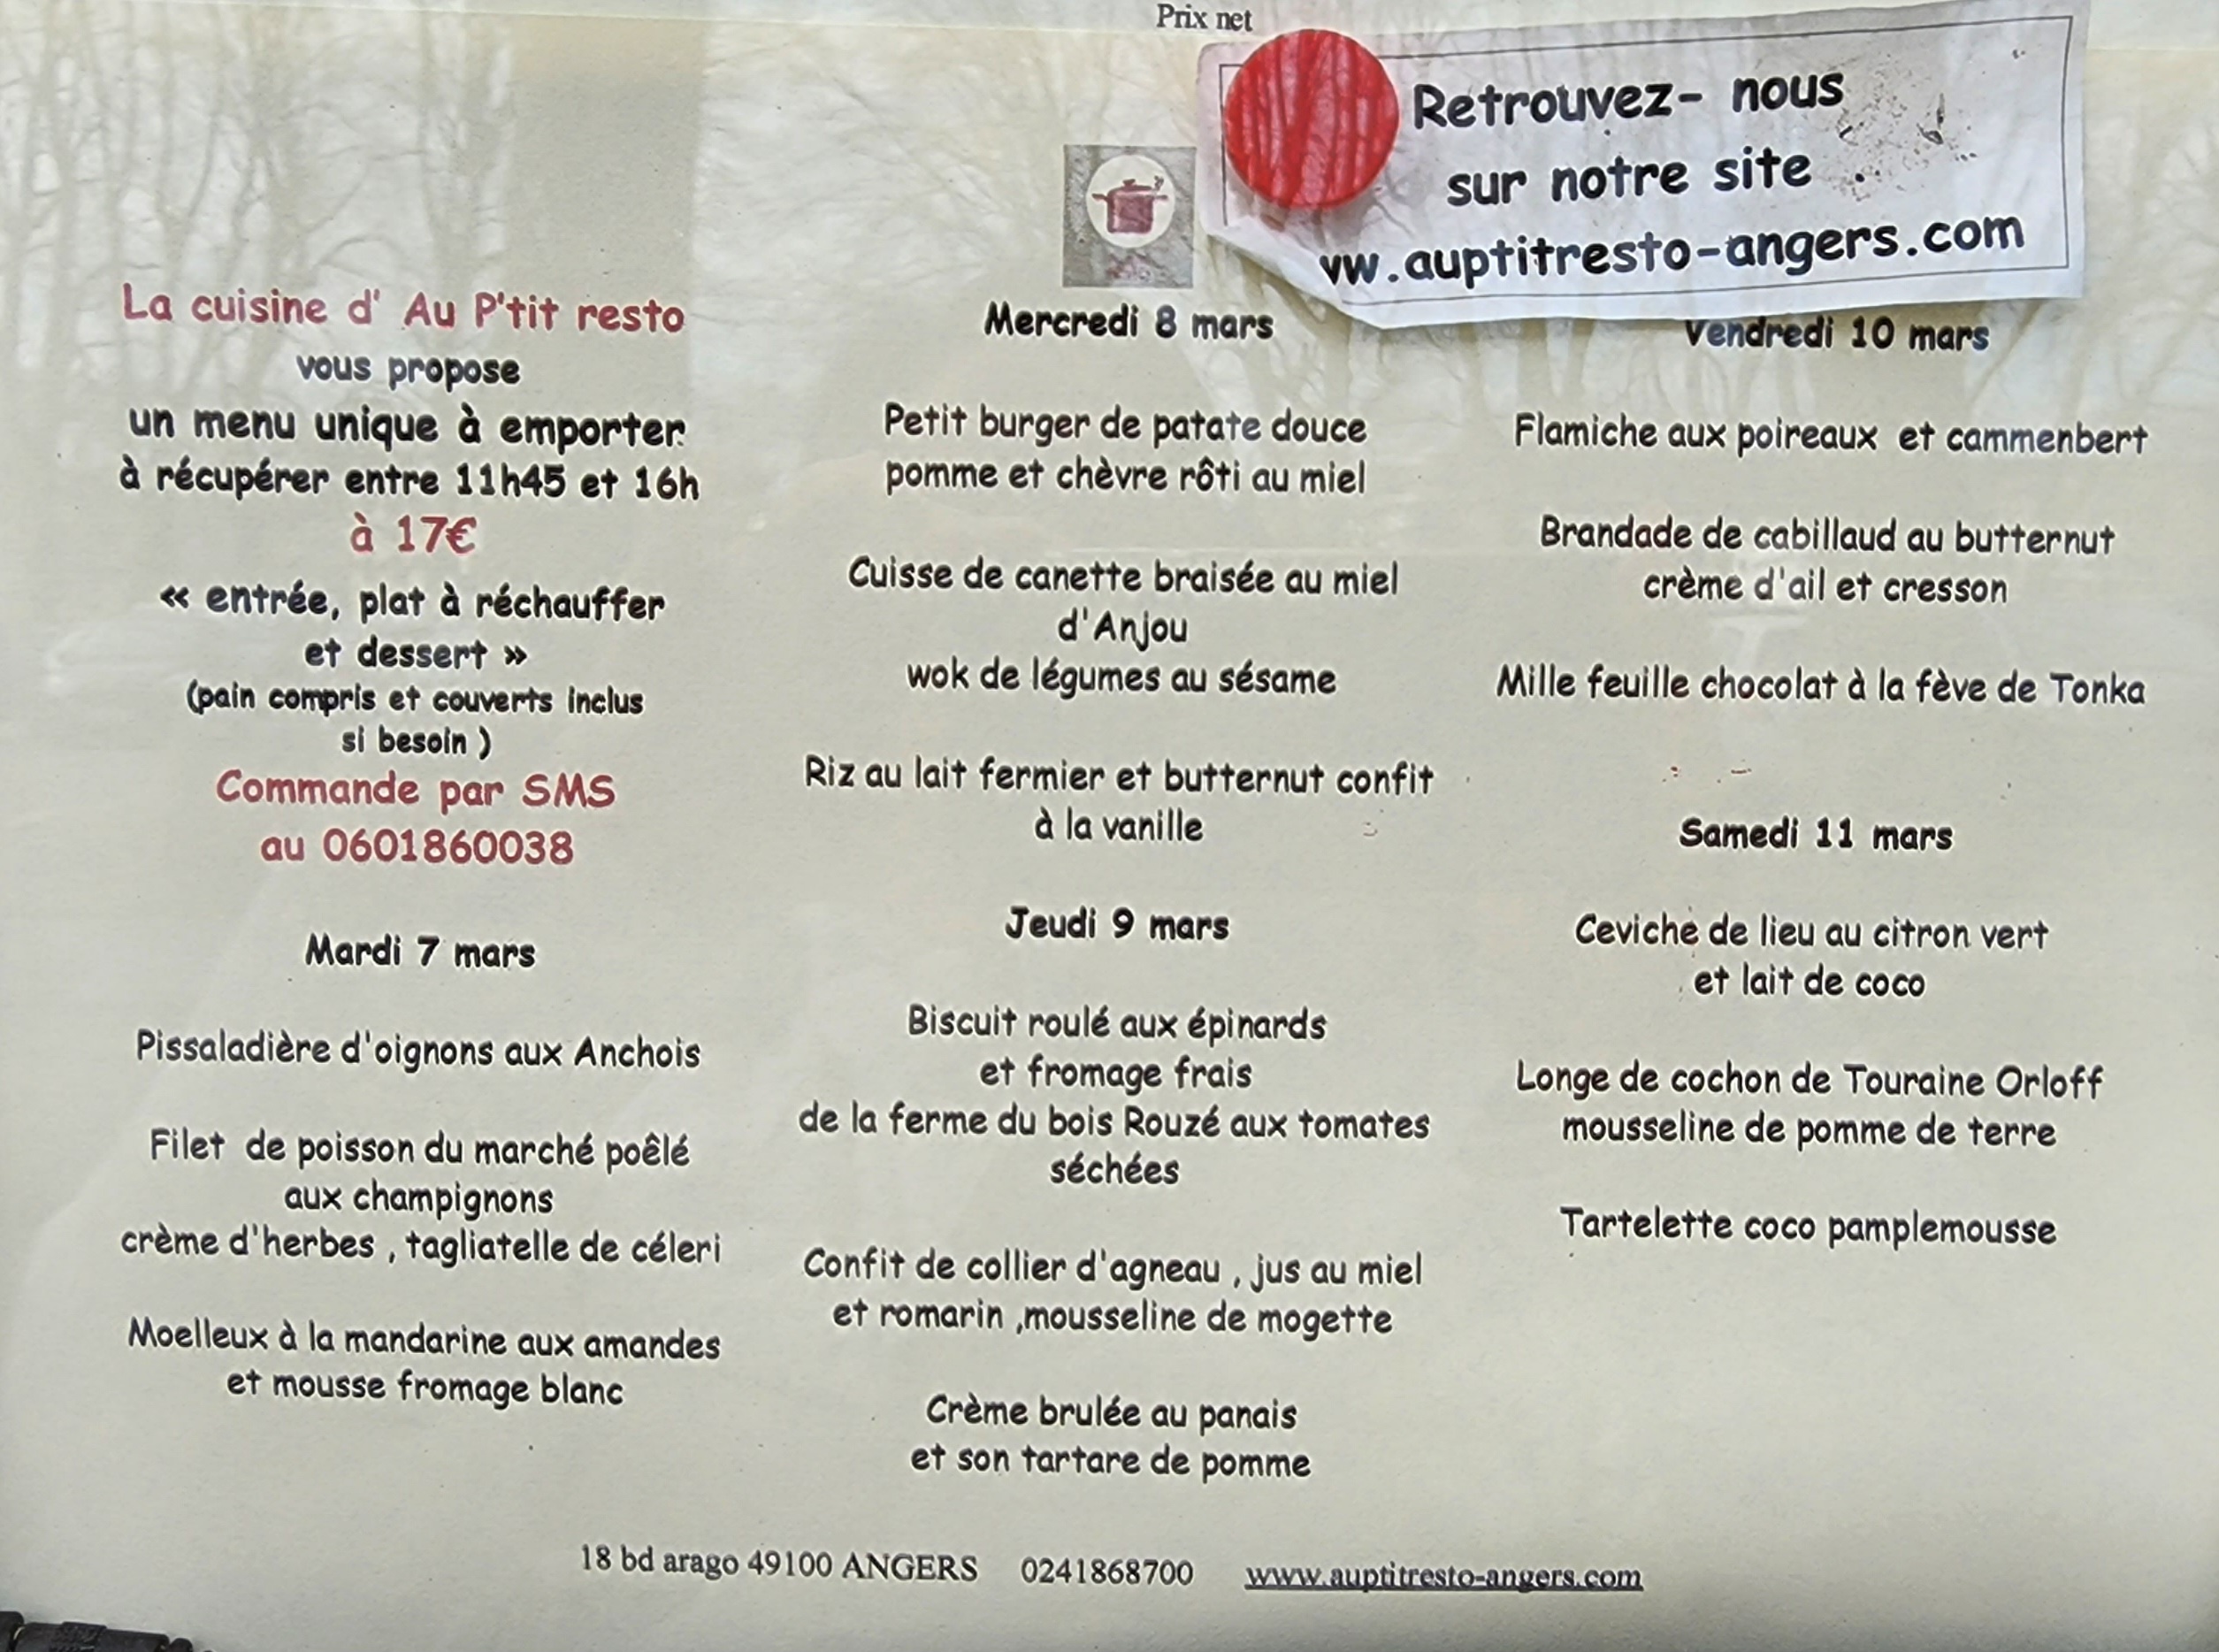 Prix net
Retrouvez- nous
sur notre site
vw.auptitresto-angers.com
La cuisine d' Au P'tit resto
vous propose
un menu unique à emporter
à récupérer entre 11h45 et 16h
à 17€
« entrée, plat à réchauffer
et dessert »
(pain compris et couverts inclus
si besoin )
Commande par SMS
au 0601860038
Mardi 7 mars
Pissaladière d'oignons aux Anchois
Filet de poisson du marché poêlé
aux champignons
crème d'herbes , tagliatelle de céleri
Moelleux à la mandarine aux amandes
et mousse fromage blanc
Mercredi 8 mars
Petit burger de patate douce
pomme et chèvre rôti au miel
Cuisse de canette braisée au miel
d'Anjou
wok de légumes au sésame
Riz au lait fermier et butternut confit
à la vanille
Jeudi 9 mars
Biscuit roulé aux épinards
et fromage frais
de la ferme du bois Rouzé aux tomates
séchées
Confit de collier d'agneau , jus au miel
et romarin ,mousseline de mogette
Crème brulée au panais
et son tartare de pomme
Vendredi 10 mars
Flamiche aux poireaux et cammenbert
Brandade de cabillaud au butternut
crème d'ail et cresson
Mille feuille chocolat à la fève de Tonka
Samedi 11 mars
Ceviche de lieu au citron vert
et lait de coco
Longe de cochon de Touraine Orloff
mousseline de pomme de terre
Tartelette coco pamplemousse
18 bd arago 49100 ANGERS 0241868700 www.auptitresto-angers.com